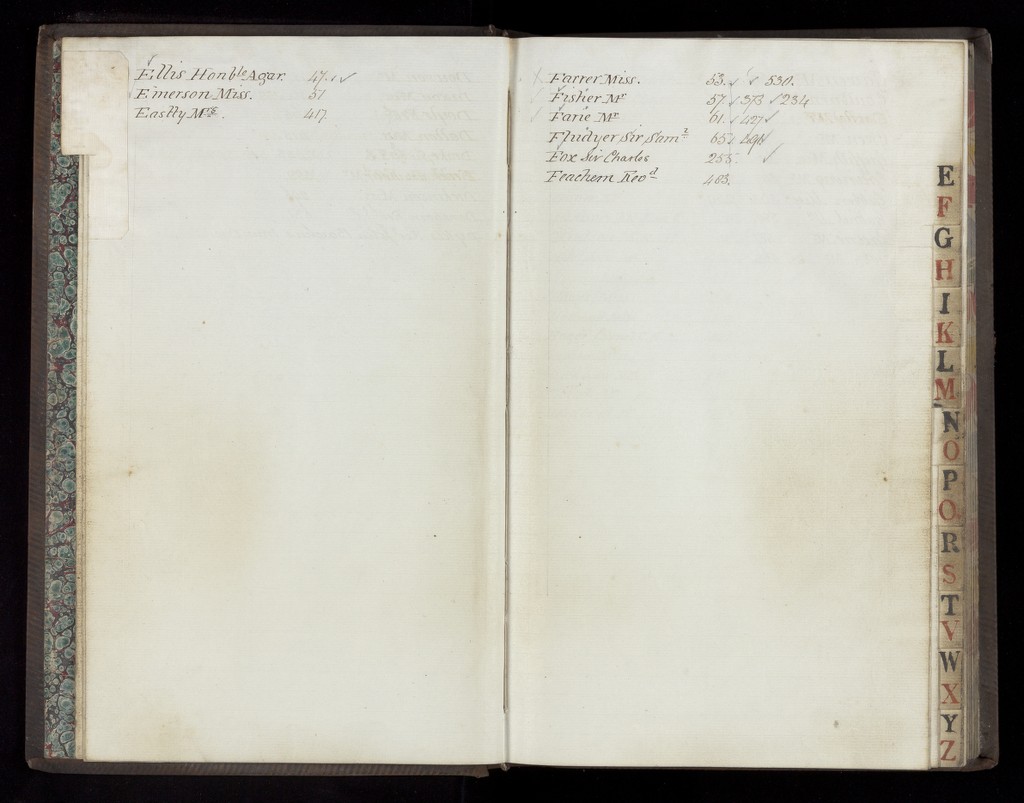 Ellis Honble Agar. 47. ✓
Emerson Miss. 51
Eastly Mrs. 417
Farrer Miss. 53. ✓ ✓ 530.
Fisher Mr 57. ✓ 373 ✓ 234
Fane Mr 61. ✓ 427 ✓
Fludyer Sir Saml 65.
Fox Sir Charles 255. ✓
Feachem Revd 483.
E
F
G
H
I
K
L
M
N
O
P
Q
R
S
T
V
W
X
Y
Z